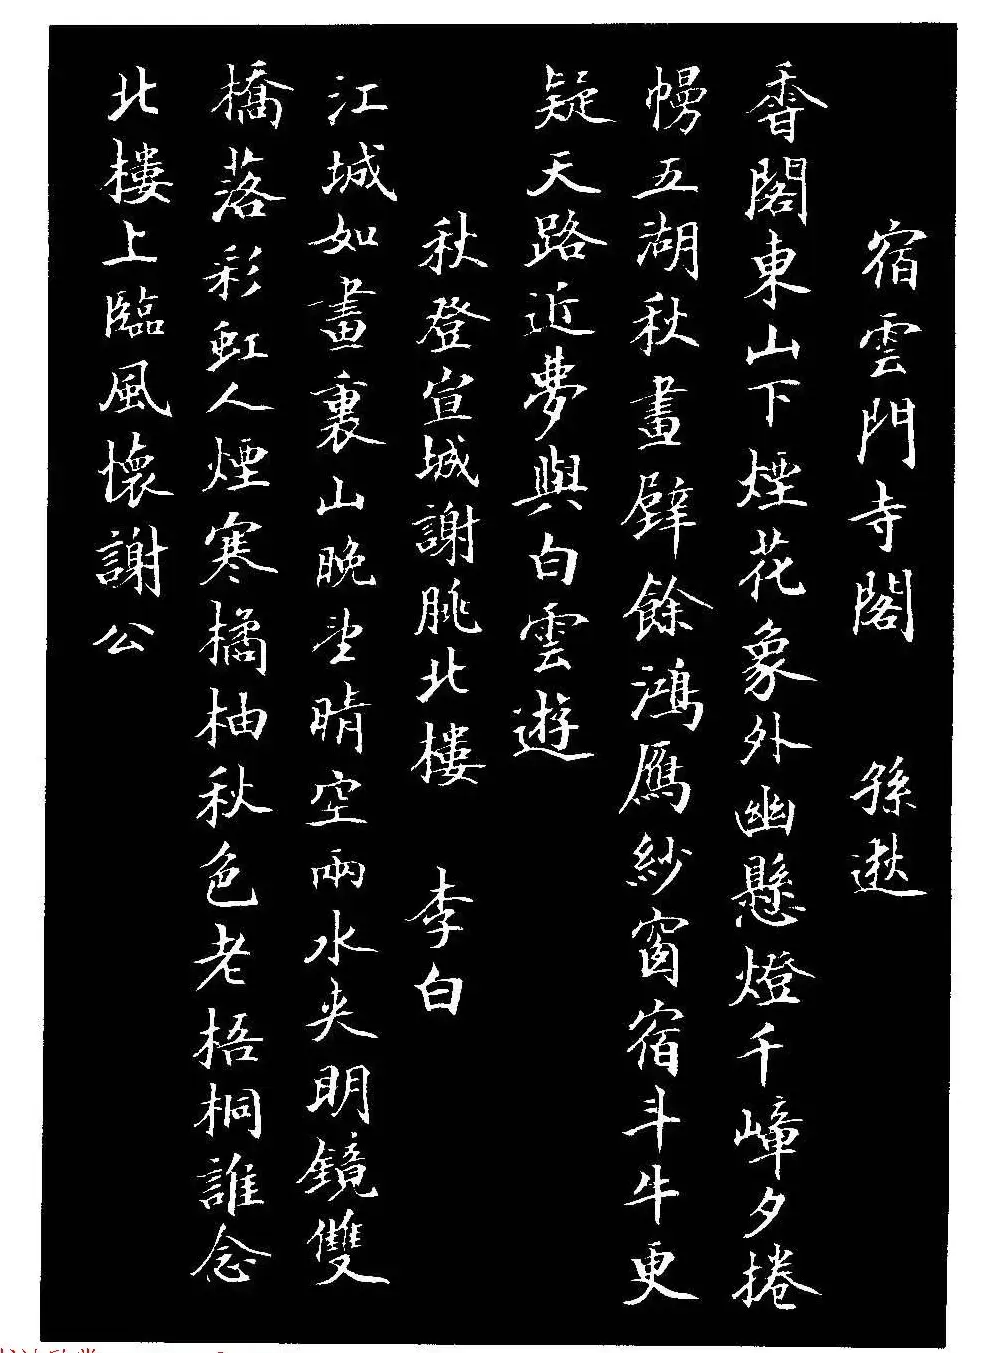 宿雲門寺閣 孫逖
香閣東山下煙花象外幽懸燈千嶂夕捲
幔五湖秋畫壁餘鴻雁紗窗宿斗牛更
疑天路近夢與白雲遊
秋登宣城謝朓北樓 李白
江城如畫裏山晚望晴空兩水夾明鏡雙
橋落彩虹人煙寒橘柚秋色老梧桐誰念
北樓上臨風懷謝公